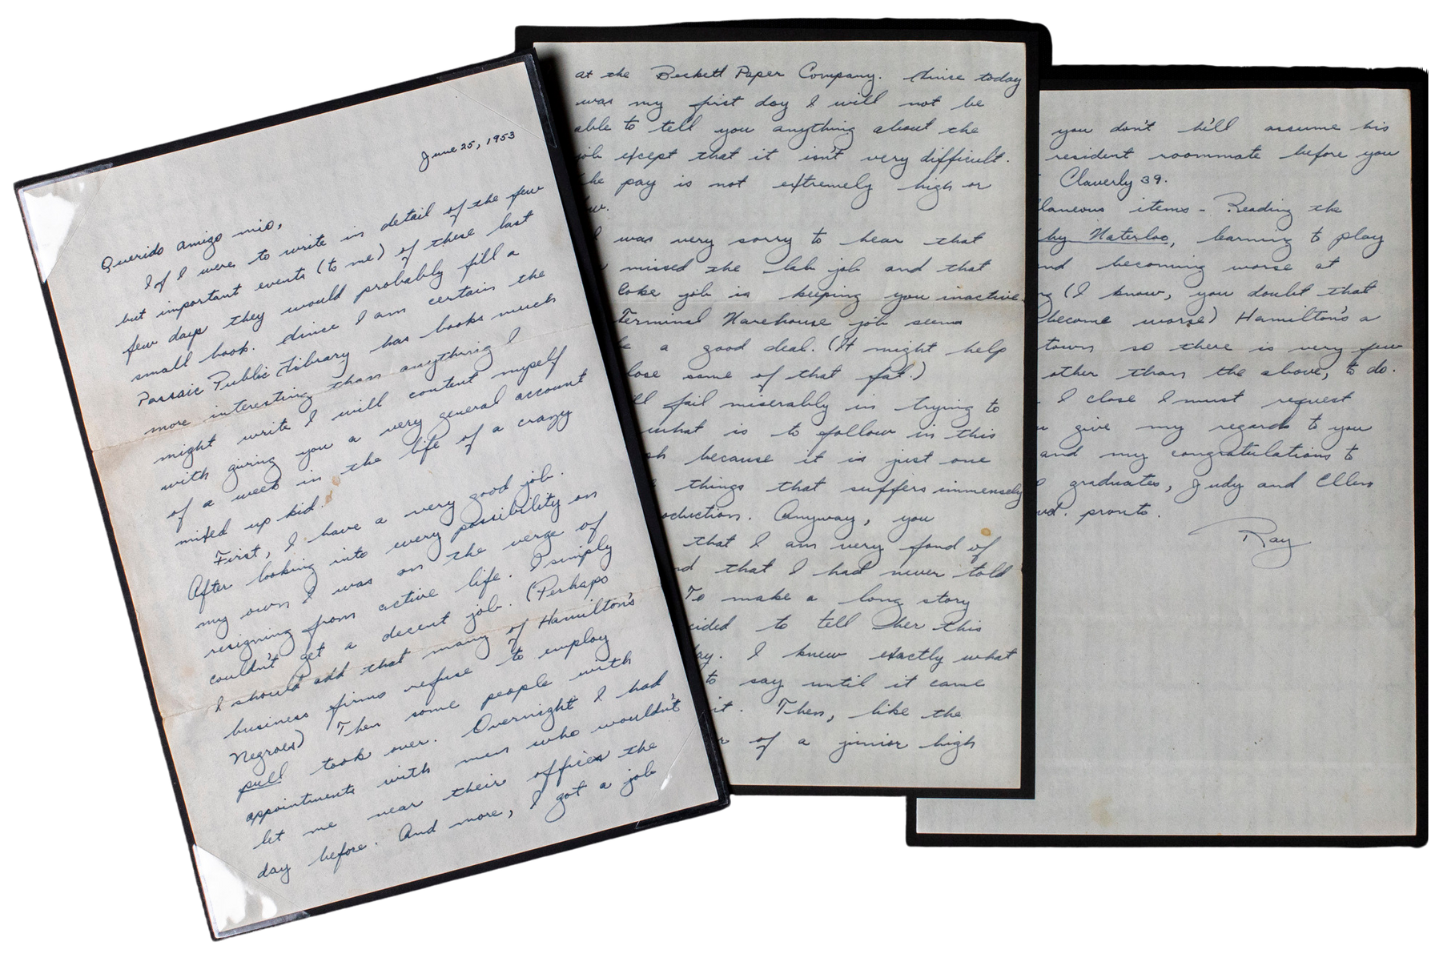 June 25, 1953
Querido amigo mio,
If I were to write in detail of the few
but important events (to me) of these last
few days they would probably fill a
small book. Since I am certain the
Passaic Public Library has books much
more interesting than anything I
might write I will content myself
with giving you a very general account
of a week in the life of a crazy
mixed up kid.
First, I have a very good job.
After looking into every possibility on
my own I was on the verge of
resigning from active life. I simply
couldn't get a decent job. (Perhaps
I should add that many of Hamilton's
business firms refuse to employ
Negroes) Then some people with
pull took over. Overnight I had
appointments with men who wouldn't
let me near their offices the
day before. And more, I got a job
at the Beckett Paper Company. Since today
was my first day I will not be
able to tell you anything about the
job except that it isn't very difficult.
he pay is not extremely high or
I was very sorry to hear that
missed the lab job and that
Coke job is keeping you inactive.
Terminal Warehouse job seems
a good deal. (It might help
lose some of that fat.)
fail miserably in trying to
what is to follow in this
because it is just one
things that suffers immensely
oduction. Anyway, you
that I am very fond of
nd that I had never told
To make a long story
cided to tell her this
I knew exactly what
to say until it came
it. Then, like the
of a junior high
you don't he'll assume his
resident roommate before you
Claverly 39.
laneous items - Reading the
by Waterloo, learning to play
nd becoming worse at
(I know, you doubt that
become worse) Hamilton's a
town so there is very few
other than the above, to do.
I close I must request
give my regards to you
and my congratulations to
graduates, Judy and Ellen
pronto.
Ray